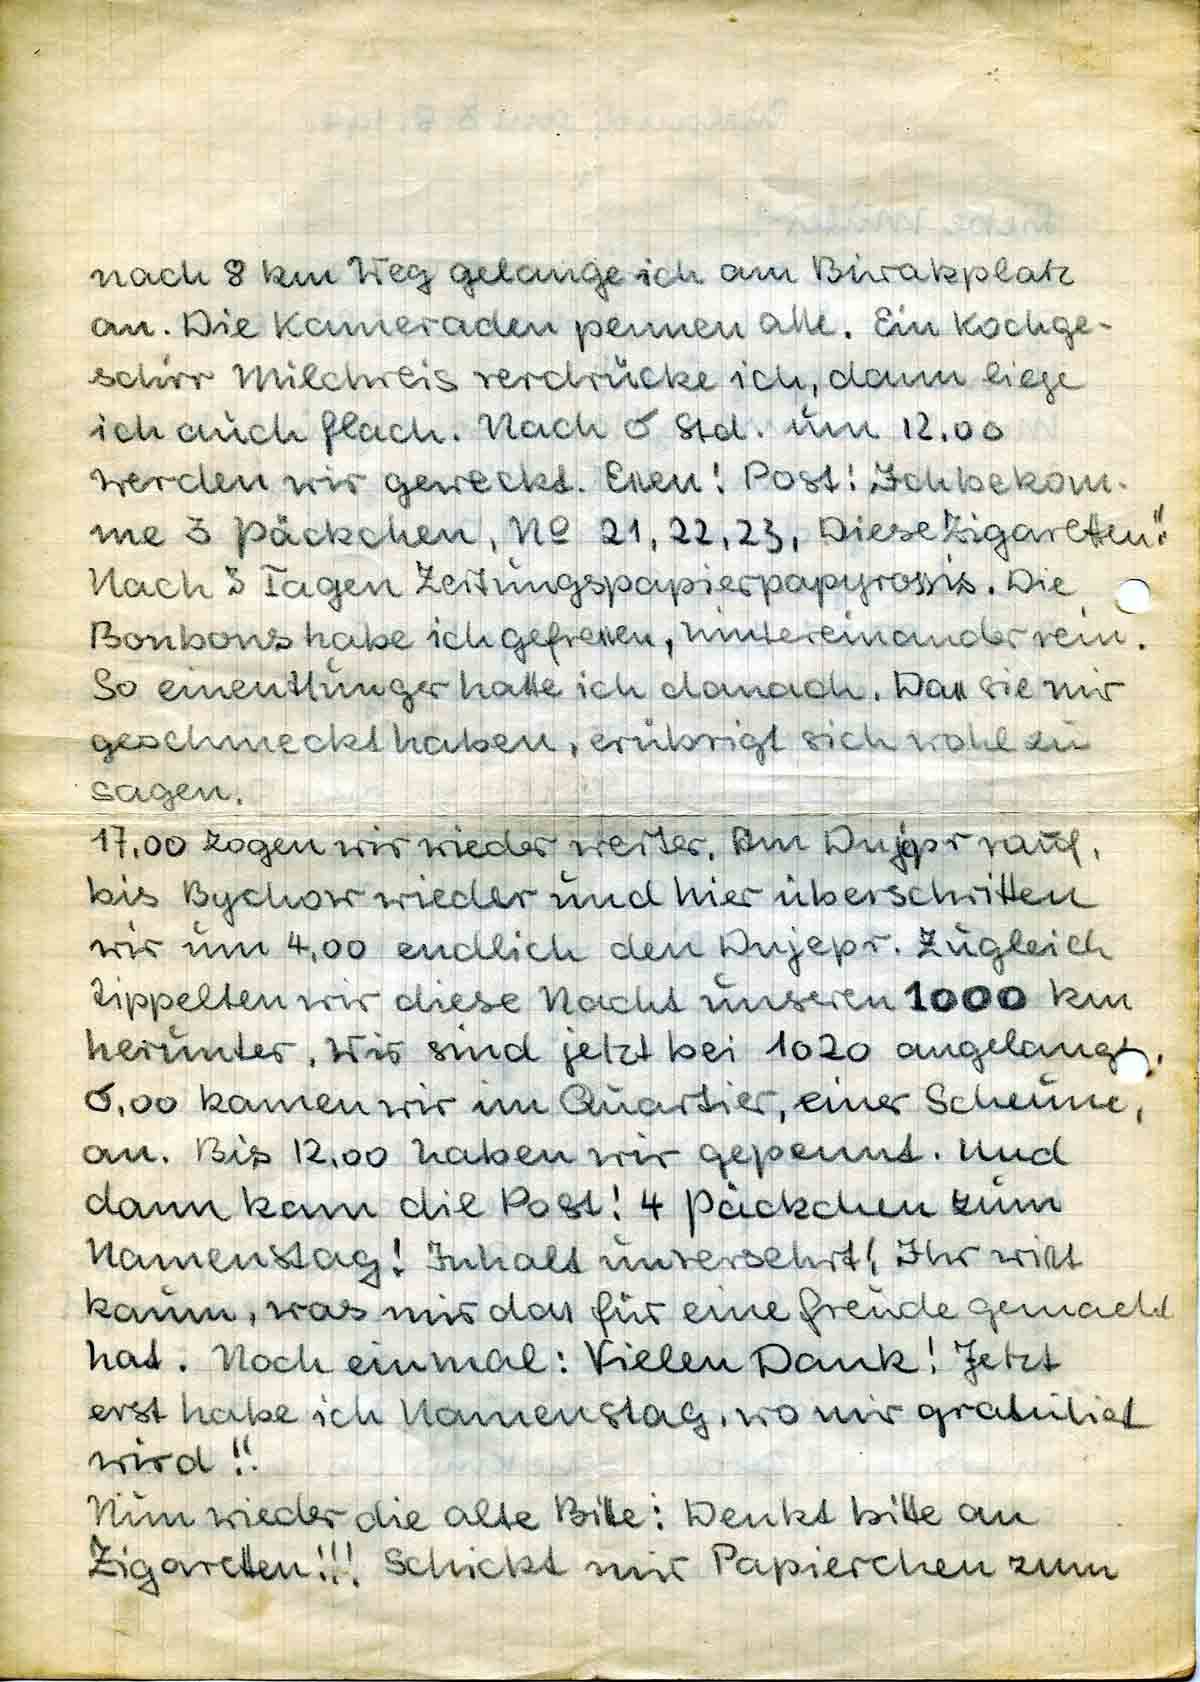 nach 8 km Weg gelange ich am Biwakplatz
an. Die Kameraden pennen alle. Ein Kochge-
schirr Milchreis verdrücke ich, dann liege
ich auch flach. Nach 6 Std. um 12.00
werden wir geweckt. Essen! Post! Ich bekom-
me 3 Päckchen, No 21, 22, 23, Diese Zigaretten!!
Nach 3 Tagen Zeitungspapierpapyrossis. Die
Bonbons habe ich gefressen, hintereinander rein.
So einen Hunger hatte ich danach. Dass sie mir
geschmeckt haben, erübrigt sich wohl zu
sagen.
17.00 zogen wir wieder weiter. Am Dnjepr rauf,
bis Bychow wieder und hier überschritten
wir um 4.00 endlich den Dnjepr. Zugleich
tippelten wir diese Nacht unseren 1000 km
herunter. Wir sind jetzt bei 1020 angelangt.
6.00 kamen wir im Quartier, einer Scheune,
an. Bis 12.00 haben wir gepennt. Und
dann kam die Post! 4 Päckchen zum
Namenstag! Inhalt unversehrt! Ihr wisst
kaum, was mir das für eine Freude gemacht
hat. Noch einmal: Vielen Dank! Jetzt
erst habe ich Namenstag, wo mir gratuliert
wird!!
Nun wieder die alte Bitte: Denkt bitte an
Zigaretten!!! Schickt mir Papierchen zum